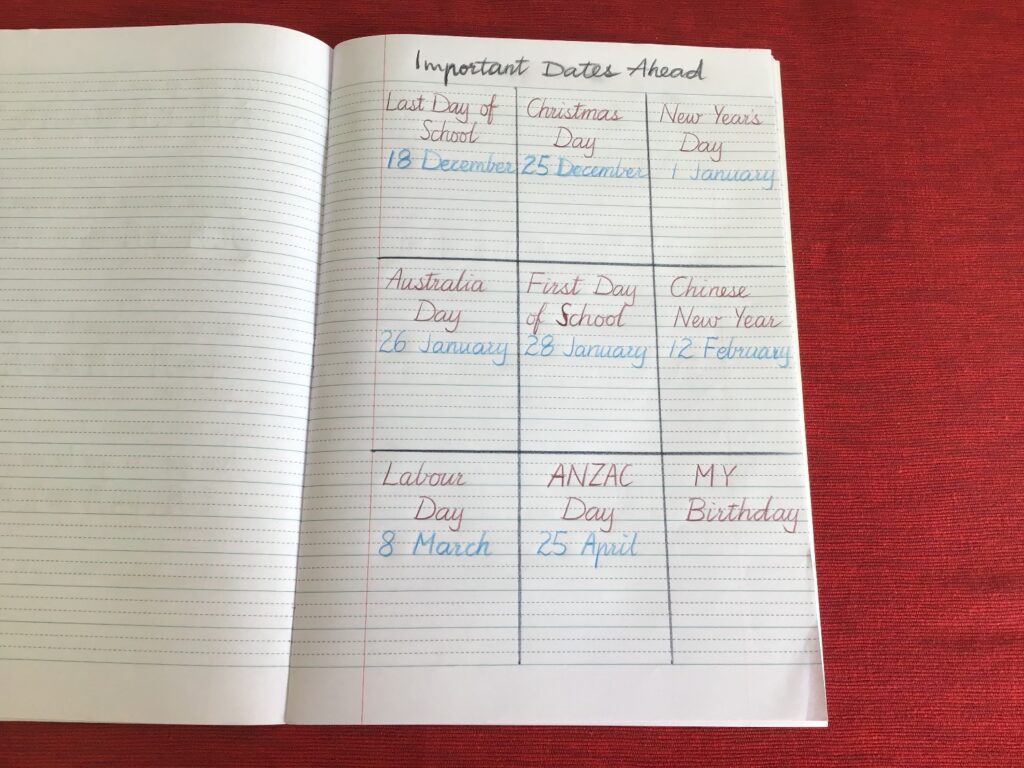 Important Dates Ahead
Last Day of
School
18 December
Christmas
Day
25 December
New Year's
Day
1 January
Australia
Day
26 January
First Day
of School
28 January
Chinese
New Year
12 February
Labour
Day
8 March
ANZAC
Day
25 April
MY
Birthday